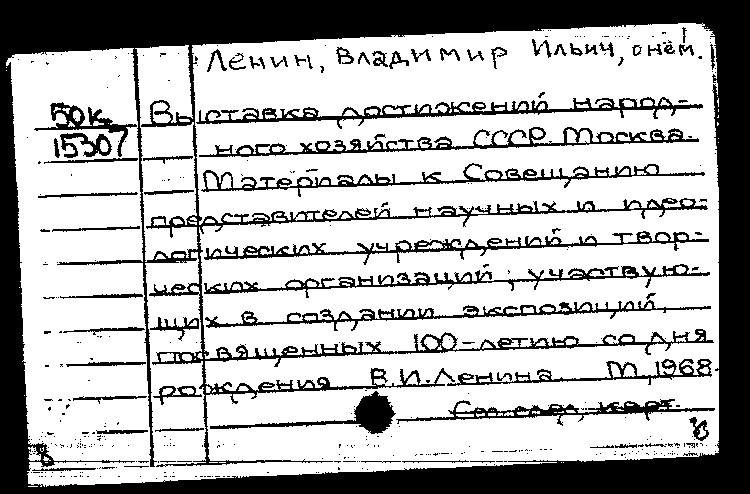 Ленин, Владимир Ильич, о нём.
50к. Выставка достижений народ-
15307 ного хозяйства СССР. Москва.
Материалы к Совещанию
представителей научных и идео-
логических учреждений и твор-
ческих организаций, участвую-
щих в создании экспозиций,
посвященных 100-летию со дня
рождения В.И.Ленина М.,1968.
См. след. карт.
8